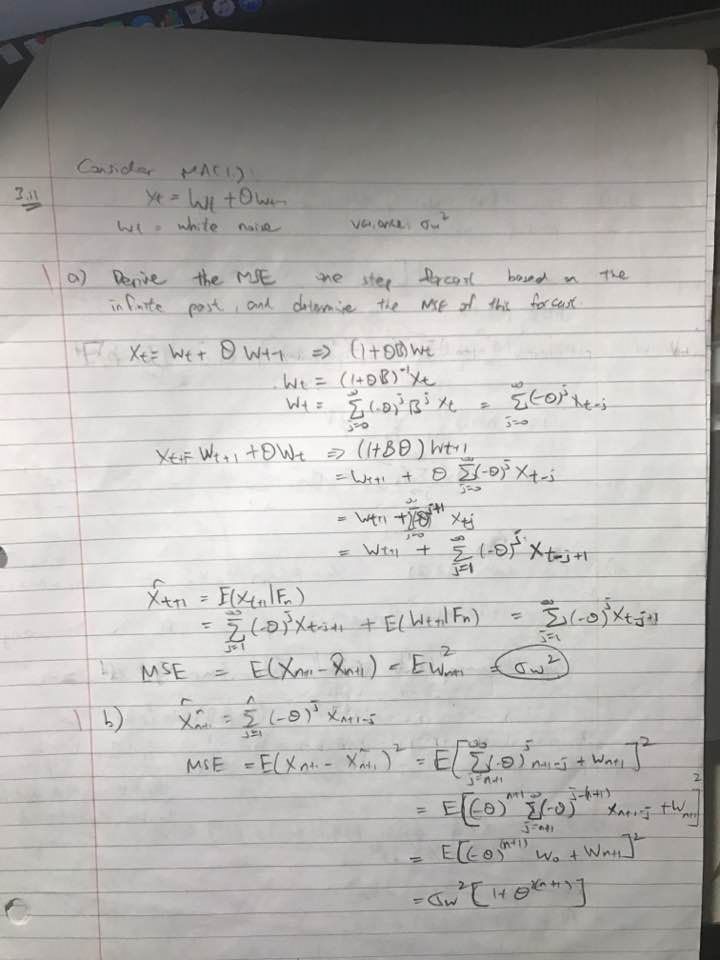 Consider MA(1).
3.11 xt = Wt + θWt-1
Wt = white noise variance: σw²
a) Derive the MSE one step forcast based on the
infinite past, and determine the MSE of this forcast.
Xt = Wt + θ Wt-1 ⇒ (1+θB)Wt
Wt = (1+θB)⁻¹Xt
Wt = ∞Σj=0 (-θ)^j B^j Xt = ∞Σj=0 (-θ)^j Xt-j
Xt+1 = Wt+1 + θWt ⇒ (1+Bθ)Wt+1
= Wt+1 + θ ∞Σj=0 (-θ)^j Xt-j
= Wt+1 + ∞Σj=0 (-θ)^j+1 Xt-j
= Wt+1 + ∞Σj=1 (-θ)^j Xt-j+1
X̂t+1 = E(Xt+1|Fn)
= ∞Σj=1 (-θ)^j Xt-j+1 + E(Wt+1|Fn) = ∞Σj=1 (-θ)^j Xt-j+1
MSE = E(Xn+1 - X̂n+1) = EW²n+1 = σw²
b) X̂ⁿn+1 = nΣj=1 (-θ)^j Xn+1-j
MSE = E(Xn+1 - X̃ⁿn+1)² = E[∞Σj=n+1 (-θ)^j n+1-j + Wn+1]²
= E[(-θ)^n+1 ∞Σj=n+1 (-θ)^j-(n+1) Xn+1-j + Wn+1]²
= E[(-θ)^(n+1) W0 + Wn+1]²
= σw² [1 + θ^2(n+1)]